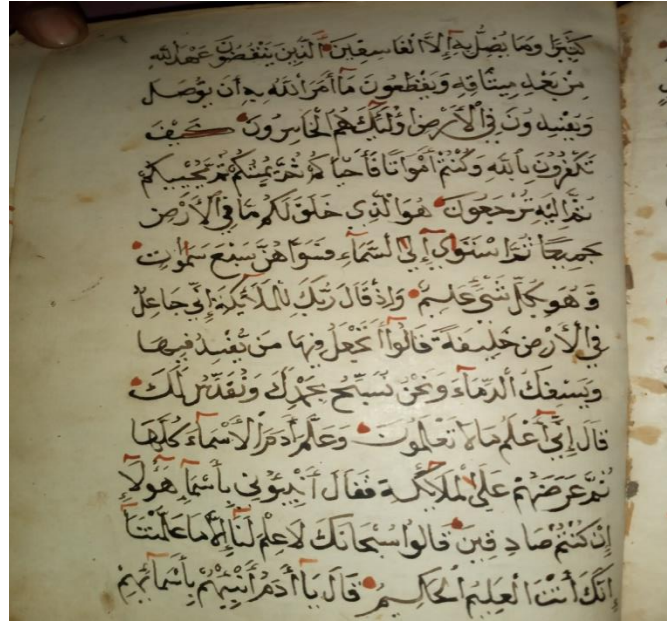 كَثِيرًا وَمَا يُضِلُّ بِهِ إِلَّا الْفَاسِقِينَ الَّذِينَ يَنْقُضُونَ عَهْدَ اللهِ
مِنْ بَعْدِ مِيثَاقِهِ وَيَقْطَعُونَ مَا أَمَرَ اللهُ بِهِ أَنْ يُوْصَلَ
وَيُفْسِدُونَ فِي الْأَرْضِ أُولَٰئِكَ هُمُ الْخَاسِرُونَ كَيْفَ
تَكْفُرُونَ بِاللهِ وَكُنْتُمْ أَمْوَاتًا فَأَحْيَاكُمْ ثُمَّ يُمِيتُكُمْ ثُمَّ يُحْيِيكُمْ
ثُمَّ إِلَيْهِ تُرْجَعُونَ هُوَ الَّذِي خَلَقَ لَكُمْ مَا فِي الْأَرْضِ
جَمِيعًا ثُمَّ اسْتَوَىٰ إِلَى السَّمَاءِ فَسَوَّاهُنَّ سَبْعَ سَمَٰوَاتٍ
وَهُوَ بِكُلِّ شَيْءٍ عَلِيمٌ وَإِذْ قَالَ رَبُّكَ لِلْمَلَائِكَةِ إِنِّي جَاعِلٌ
فِي الْأَرْضِ خَلِيفَةً قَالُوا أَتَجْعَلُ فِيهَا مَنْ يُفْسِدُ فِيهَا
وَيَسْفِكُ الدِّمَاءَ وَنَحْنُ نُسَبِّحُ بِحَمْدِكَ وَنُقَدِّسُ لَكَ
قَالَ إِنِّي أَعْلَمُ مَا لَا تَعْلَمُونَ وَعَلَّمَ آدَمَ الْأَسْمَاءَ كُلَّهَا
ثُمَّ عَرَضَهُمْ عَلَى الْمَلَائِكَةِ فَقَالَ أَنْبِئُونِي بِأَسْمَاءِ هَٰؤُلَاءِ
إِنْ كُنْتُمْ صَادِقِينَ قَالُوا سُبْحَانَكَ لَا عِلْمَ لَنَا إِلَّا مَا عَلَّمْتَنَا
إِنَّكَ أَنْتَ الْعَلِيمُ الْحَكِيمُ قَالَ يَا آدَمُ أَنْبِئْهُمْ بِأَسْمَائِهِمْ